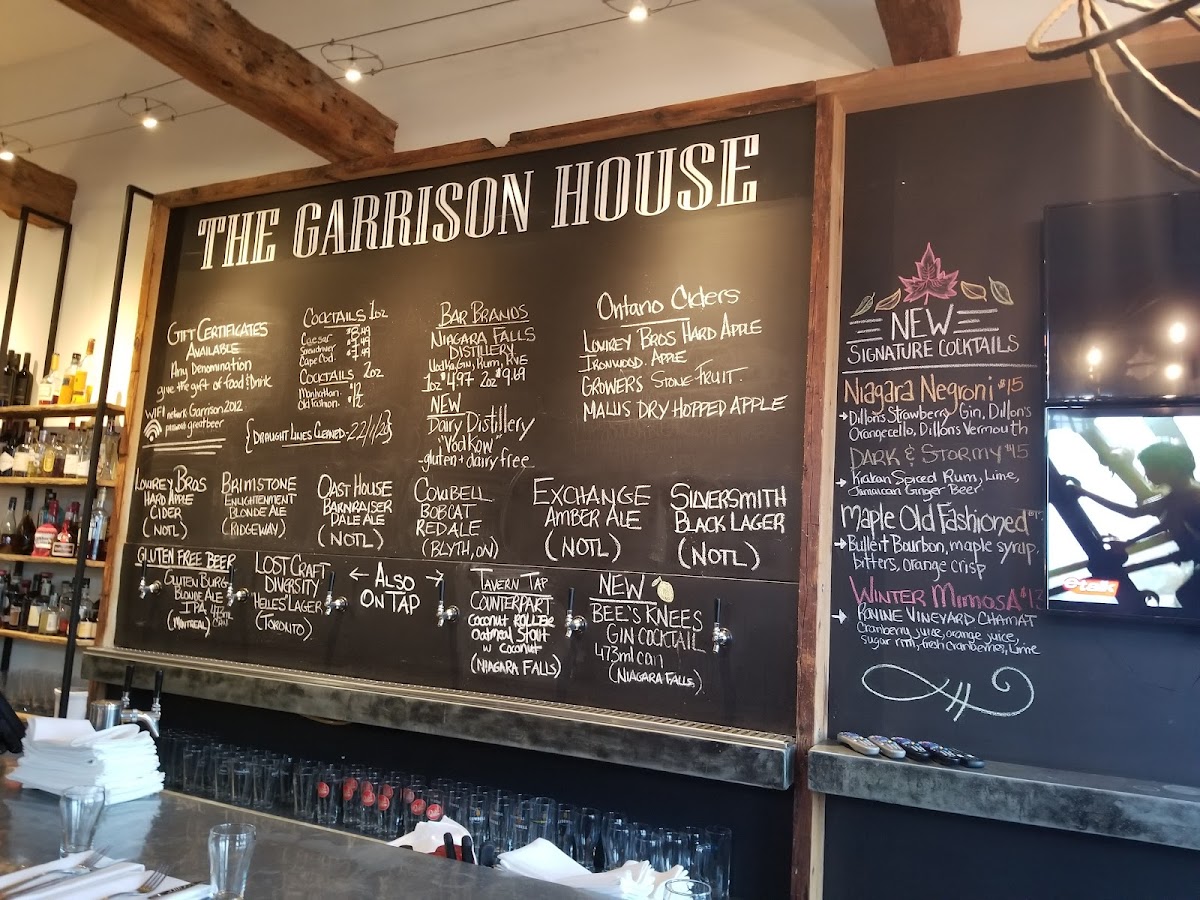 THE GARRISON HOUSE
GIFT CERTIFICATES
AVAILABLE
Any Denomination
give the gift of food & Drink
WIFI network Garrison2012
password greatbeer
COCKTAILS 1oz
Caesar
Screwdriver
Cape Cod.
COCKTAILS 2oz
Manhattan.
Old Fashion. $12
{DRAUGHT LINES CLEANED-22/11/23}
BAR BRANDS
NIAGARA FALLS
DISTILLERY
Vodka, Gin, Rum, RYE
1oz $4.97 2oz $9.69
NEW
Dairy Distillery
"VodKow"
-gluten + dairy free
Ontario Ciders
LOWREY BROS HARD APPLE
IRONWOOD. APPLE
GROWERS STONE FRUIT.
MALUS DRY HOPPED APPLE
LOWREY BROS
HARD APPLE
CIDER
(NOTL)
BRIMSTONE
ENLIGHTENMENT
BLONDE ALE
(RIDGEWAY)
OAST HOUSE
BARNRAISER
PALE ALE
(NOTL)
COWBELL
BOBCAT
RED ALE
(BLYTH, ON)
EXCHANGE
AMBER ALE
(NOTL)
SILVERSMITH
BLACK LAGER
(NOTL)
GLUTEN FREE BEER
GLUTENBURG
BLONDE ALE
IPA, 473ml
(MONTREAL) can
LOST CRAFT
DIVERSITY
HELLES LAGER
(TORONTO)
← ALSO →
ON TAP
TAVERN TAP
COUNTERPART
Coconut ROLLER
Oatmeal Stout
w Coconut
(NIAGARA FALLS)
NEW
BEE'S KNEES
GIN COCKTAIL
473ml can
(NIAGARA FALLS)
NEW
SIGNATURE COCKTAILS
NIAGARA NEGRONI $15
→ Dillon's Strawberry Gin, Dillon's
Orangecello, Dillons Vermouth
DARK & STORMY $15
→ Kraken Spiced Rum, Lime,
Jamaican Ginger Beer
MAPLE OLD FASHIONED
→ Bulleit Bourbon, maple syrup,
bitters, orange crisp
WINTER MIMOSA
→ PONINE VINEYARD CHAMAT
Cranberry juice, orange juice,
sugar rim, fresh cranberries, Lime
etalk